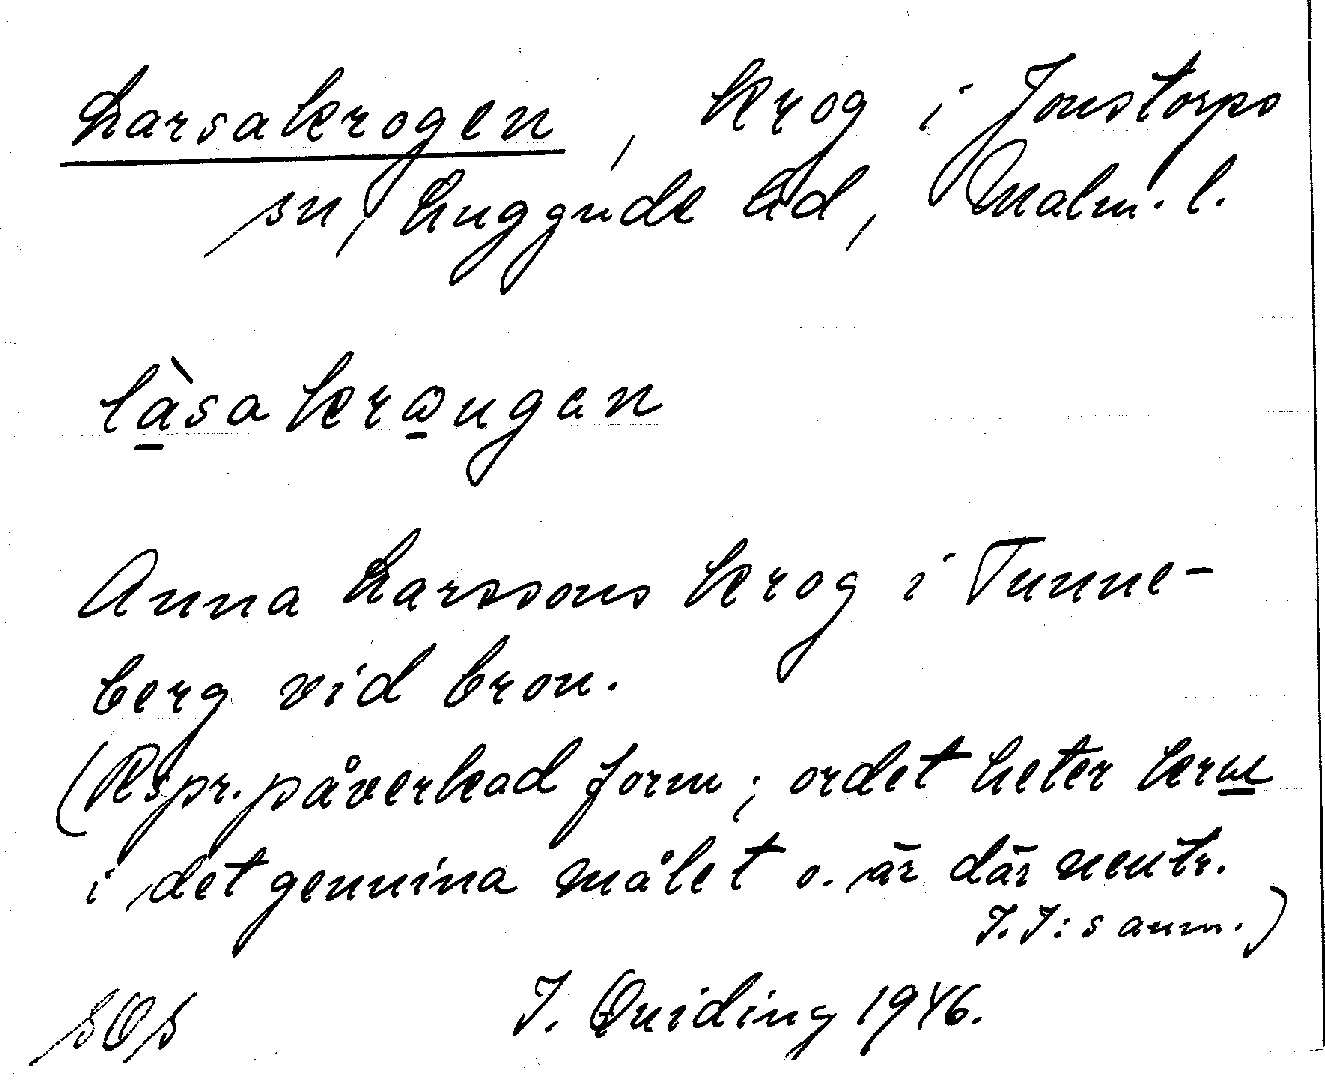 Larsakrogen, krog i Jonstorps
sn, Luggude hd, Malm. l.
làsakrωngan
Anna Larssons krog i Tunne-
berg vid bron.
(Rspr. påverkad form; ordet heter kru
i det genuina målet o. är där neutr.
I.I:s anm.)
SOS I. Quiding 1946.